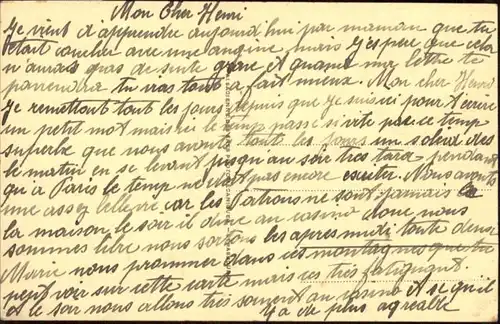 Mon Cher Henri
Je vient d apprendre aujourd hui par maman que tu
était coucher avec une angine mais j'espère que cela
n'aurais pas de suite grave et quand ma lettre te
parviendra tu vas tout à fait mieux. Mon cher Henri
Je remettait tout les jours depuis que je suis ici pour t écrire
un petit mot mais ici le temp passe si vite par ce temp
superbe que nous avons tout les jours un soleil des
le matin en se levant jusqu au soir très tard pendant
qu à Paris le temp ne doit pas encore exister. Nous avons
une assez belle vie car les Patrons ne sont jamais à
la maison le soir il dine au casino donc nous
sommes libre nous sortons les après midi toute deux
Marie nous promener dans ces montagnes que tu
peut voir sur cette carte mais ces très fatiguant
et le soir nous allons très souvent au casino et se qu il
y a de plus agréable